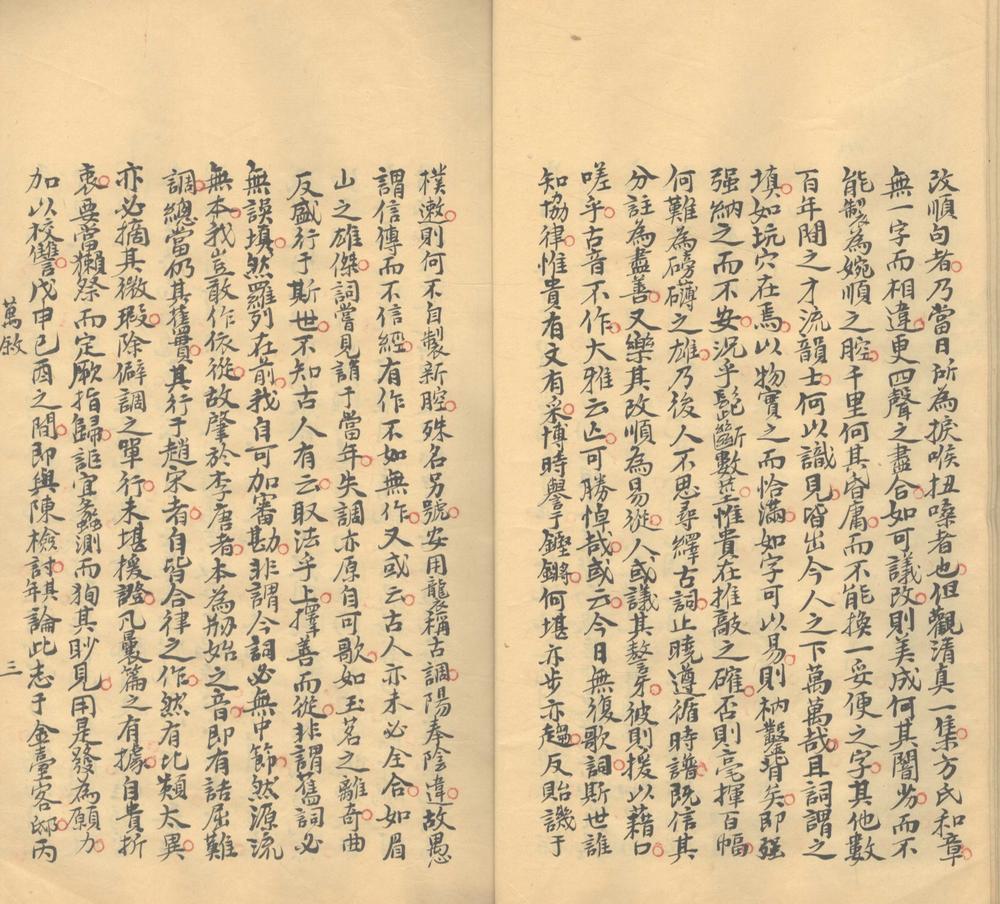 改順句者乃當日所為捩喉扭嗓者也但觀清真一集方氏和章
無一字而相違更四聲之盡合如可議改則美成何其闇劣而不
能製為婉順之腔千里何其昏庸而不能換一妥便之字其他數
百年間之才流韻士何以識見皆出今人之下萬萬哉且詞謂之
填如坑穴在焉以物實之而恰滿如字可以易則枘鑿背矣即强
强納之而不安况乎髭斷數莖惟貴在推敲之確否則毫揮百幅
何難為磅礴之雄乃後人不思尋繹古詞止曉遵循時譜既信其
分註為盡善又樂其改順為易從人或議其聱牙彼則援以藉口
嗟乎古音不作大雅云亡可勝悼哉或云今日無復歌詞斯世誰
知協律惟貴有文有采博時譽于鏗鏘何堪亦步亦趨反貽譏于
樸遬則何不自製新腔殊名另號安用襲稱古調陽奉陰違故愚
謂信傳而不信經有作不如無作又或云古人亦未必全合如眉
山之雄傑詞嘗見誚于當年失調亦原自可歌如玉茗之離奇曲
反盛行于斯世不知古人有云取法乎上擇善而從非謂舊詞必
無誤填然羅列在前我自可加審勘非謂今詞必無中節然源流
無本我豈敢作依從故肇於李唐者本為剏始之音即有詰屈難
調總當仍其舊貫其行于趙宋者自皆合律之作然有比類太異
亦必摘其微瑕除僻調之單行未堪援證凡曩篇之有據自貴折
衷要當獺祭而定厥指歸詎宜蠡測而狥其眇見用是發為願力
加以校讐戊申己酉之間即與陳檢討其年論此志于金臺客邸丙
萬敘
三